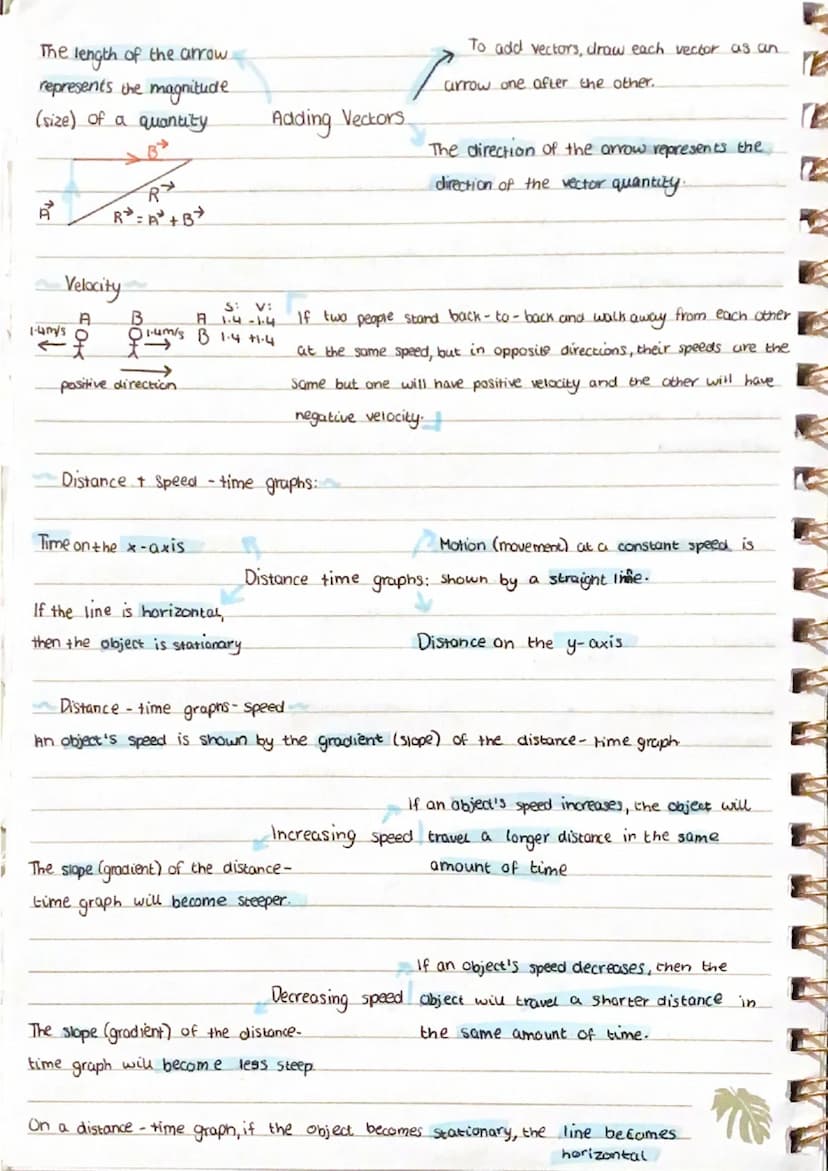 The length of the arrow
represents the magnitude
(size) of a quantity
Adding Vectors
To add vectors, draw each vector as an
arrow one after the other.
The direction of the arrow represents the
direction of the vector quantity.
B→
A→
R→
R→ = A→ + B→
Velocity
A B
1.4m/s 1.4m/s
positive direction
S: V:
A 1.4 -1.4
B 1.4 +1.4
If two people stand back-to-back and walk away from each other
at the same speed, but in opposite directions, their speeds are the
same but one will have positive velocity and the other will have
negative velocity.
Distance + speed - time graphs:
Time on the x-axis
Motion (movement) at a constant speed is
Distance time graphs: shown by a straight line.
If the line is horizontal,
then the object is stationary
Distance on the y-axis
Distance - time graphs - speed
An object's speed is shown by the gradient (slope) of the distance - time graph
If an object's speed increases, the object will
Increasing speed travel a longer distance in the same
amount of time
The slope (gradient) of the distance-
time graph will become steeper.
If an object's speed decreases, then the
Decreasing speed object will travel a shorter distance in
the same amount of time.
The slope (gradient) of the distance-
time graph will become less steep.
On a distance - time graph, if the object becomes stationary, the line becomes
horizontal